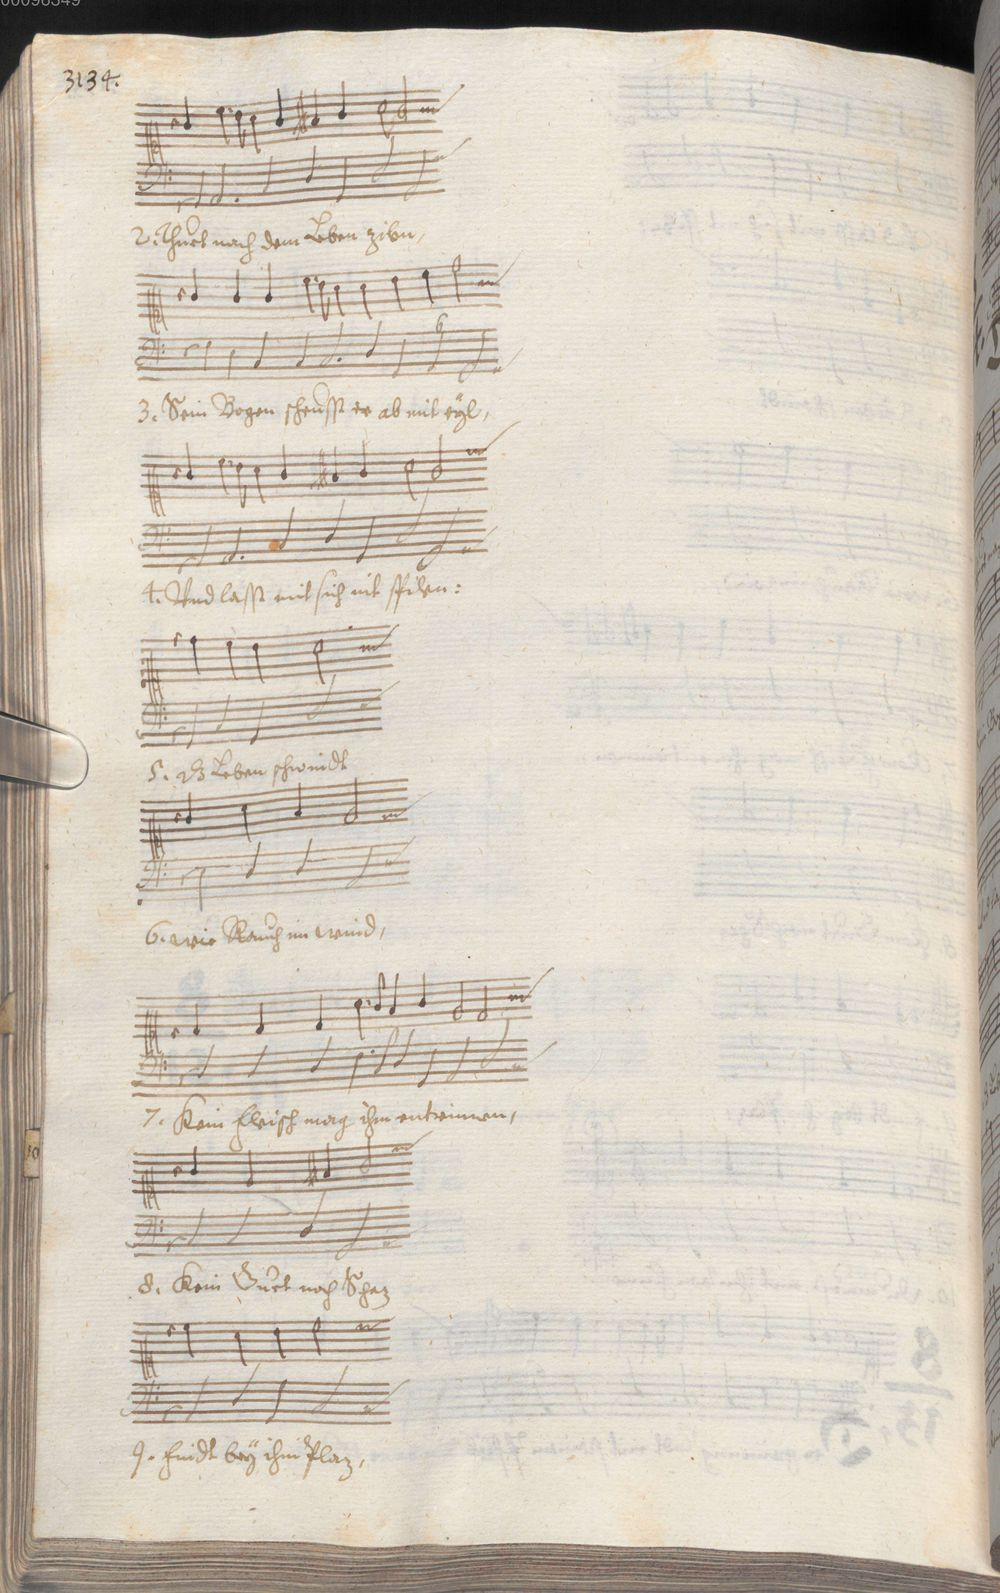 00098349
3134.
2. Thuet nach dem Leben zilen,
3. Sein Bogen scheusst er ab mit eyl,
4. Vnd lasst mit sich nit spilen:
5. Leben schwindt
6. wie Rauch im wind,
7. Kein fleisch mag ihm entrinnen,
8. Kein Guet noch Schaz
9. findt beÿ ihm Plaz,